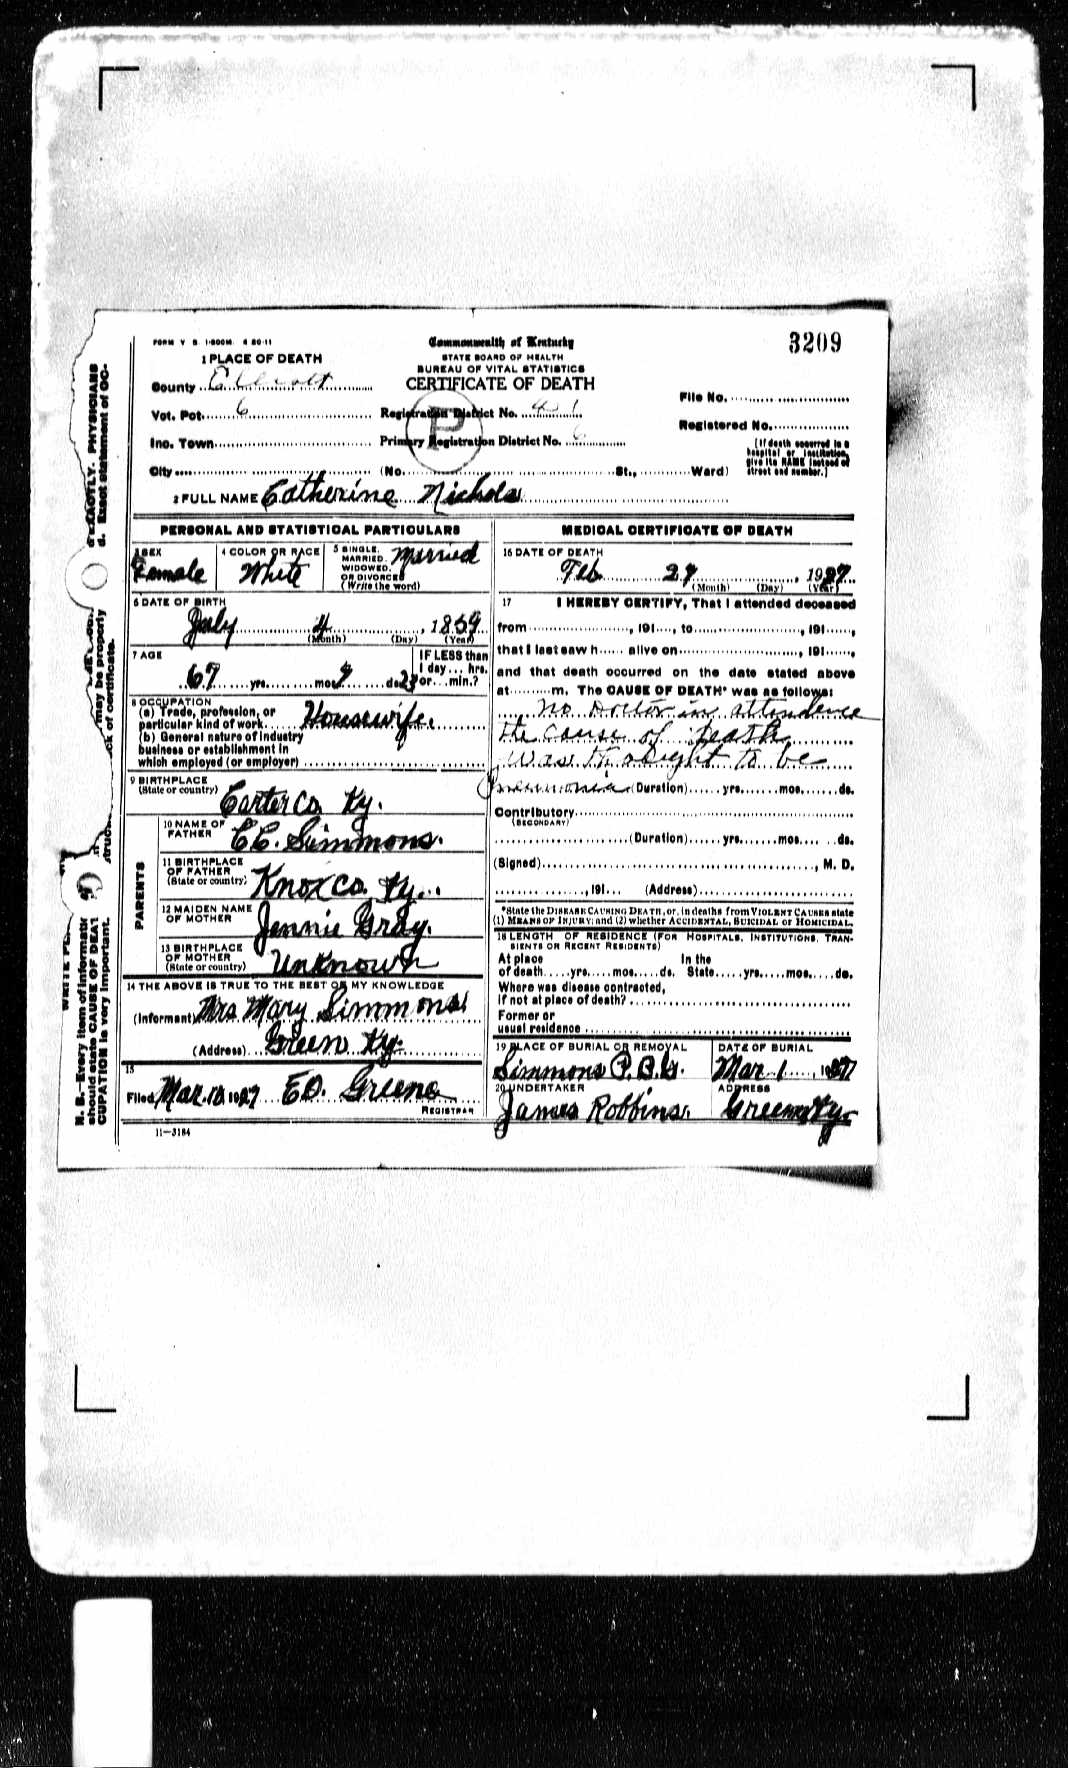 FORM V. S. 1-500M. 4 20-11
Commonwealth of Kentucky
3209
STATE BOARD OF HEALTH
BUREAU OF VITAL STATISTICS
CERTIFICATE OF DEATH
1 PLACE OF DEATH
County Elliott
Vot. Pct. 6
Registration District No. 41
Inc. Town
Primary Registration District No. 6
City
(No. St., Ward)
File No.
Registered No.
[If death occurred in a
hospital or institution,
give its NAME instead of
street and number.]
P
2 FULL NAME Catherine Nichols
PERSONAL AND STATISTICAL PARTICULARS
3 SEX
Female
4 COLOR OR RACE
White
5 SINGLE,
MARRIED,
WIDOWED,
OR DIVORCED
(Write the word)
Married
6 DATE OF BIRTH
July 4, 1859
(Month) (Day) (Year)
7 AGE
67 yrs. mos. 7 ds. 23
IF LESS than
1 day... hrs.
or...min.?
8 OCCUPATION
(a) Trade, profession, or
particular kind of work Housewife.
(b) General nature of industry
business or establishment in
which employed (or employer)
9 BIRTHPLACE
(State or country) Carter Co. Ky.
PARENTS
10 NAME OF
FATHER
C.C. Simmons.
11 BIRTHPLACE
OF FATHER
(State or country)
Knox Co. Ky.
12 MAIDEN NAME
OF MOTHER
Jennie Gray.
13 BIRTHPLACE
OF MOTHER
(State or country)
Unknown
14 THE ABOVE IS TRUE TO THE BEST OF MY KNOWLEDGE
(Informant) Mrs Mary Simmons
(Address) Green Ky.
15
Filed Mar. 10 1927 E.D. Greene
REGISTRAR
11—3184
MEDICAL CERTIFICATE OF DEATH
16 DATE OF DEATH
Feb 27, 1927
(Month) (Day) (Year)
17 I HEREBY CERTIFY, That I attended deceased
from , 191 , to , 191 ,
that I last saw h alive on , 191 ,
and that death occurred on the date stated above
at m. The CAUSE OF DEATH* was as follows:
No Doctor in attendence
the cause of Death
was thought to be
Pneumonia (Duration) yrs. mos. ds.
Contributory
(SECONDARY)
(Duration) yrs. mos. ds.
(Signed) , M. D.
, 191 (Address)
*State the DISEASE CAUSING DEATH, or, in deaths from VIOLENT CAUSES state
(1) MEANS OF INJURY; and (2) whether ACCIDENTAL, SUICIDAL or HOMICIDAL.
18 LENGTH OF RESIDENCE (FOR HOSPITALS, INSTITUTIONS, TRAN-
SIENTS OR RECENT RESIDENTS)
At place In the
of death yrs. mos. ds. State yrs. mos. ds.
Where was disease contracted,
if not at place of death?
Former or
usual residence
19 PLACE OF BURIAL OR REMOVAL
Simmons P.B.G.
DATE OF BURIAL
Mar. 1, 1927
20 UNDERTAKER
James Robbins.
ADDRESS
Green Ky.
N. B.—Every item of informati
should state CAUSE OF DEAT
CUPATION is very important.
EXACTLY. PHYSICIANS
d. Exact statement of OC-
may be properly
ck of certificate.